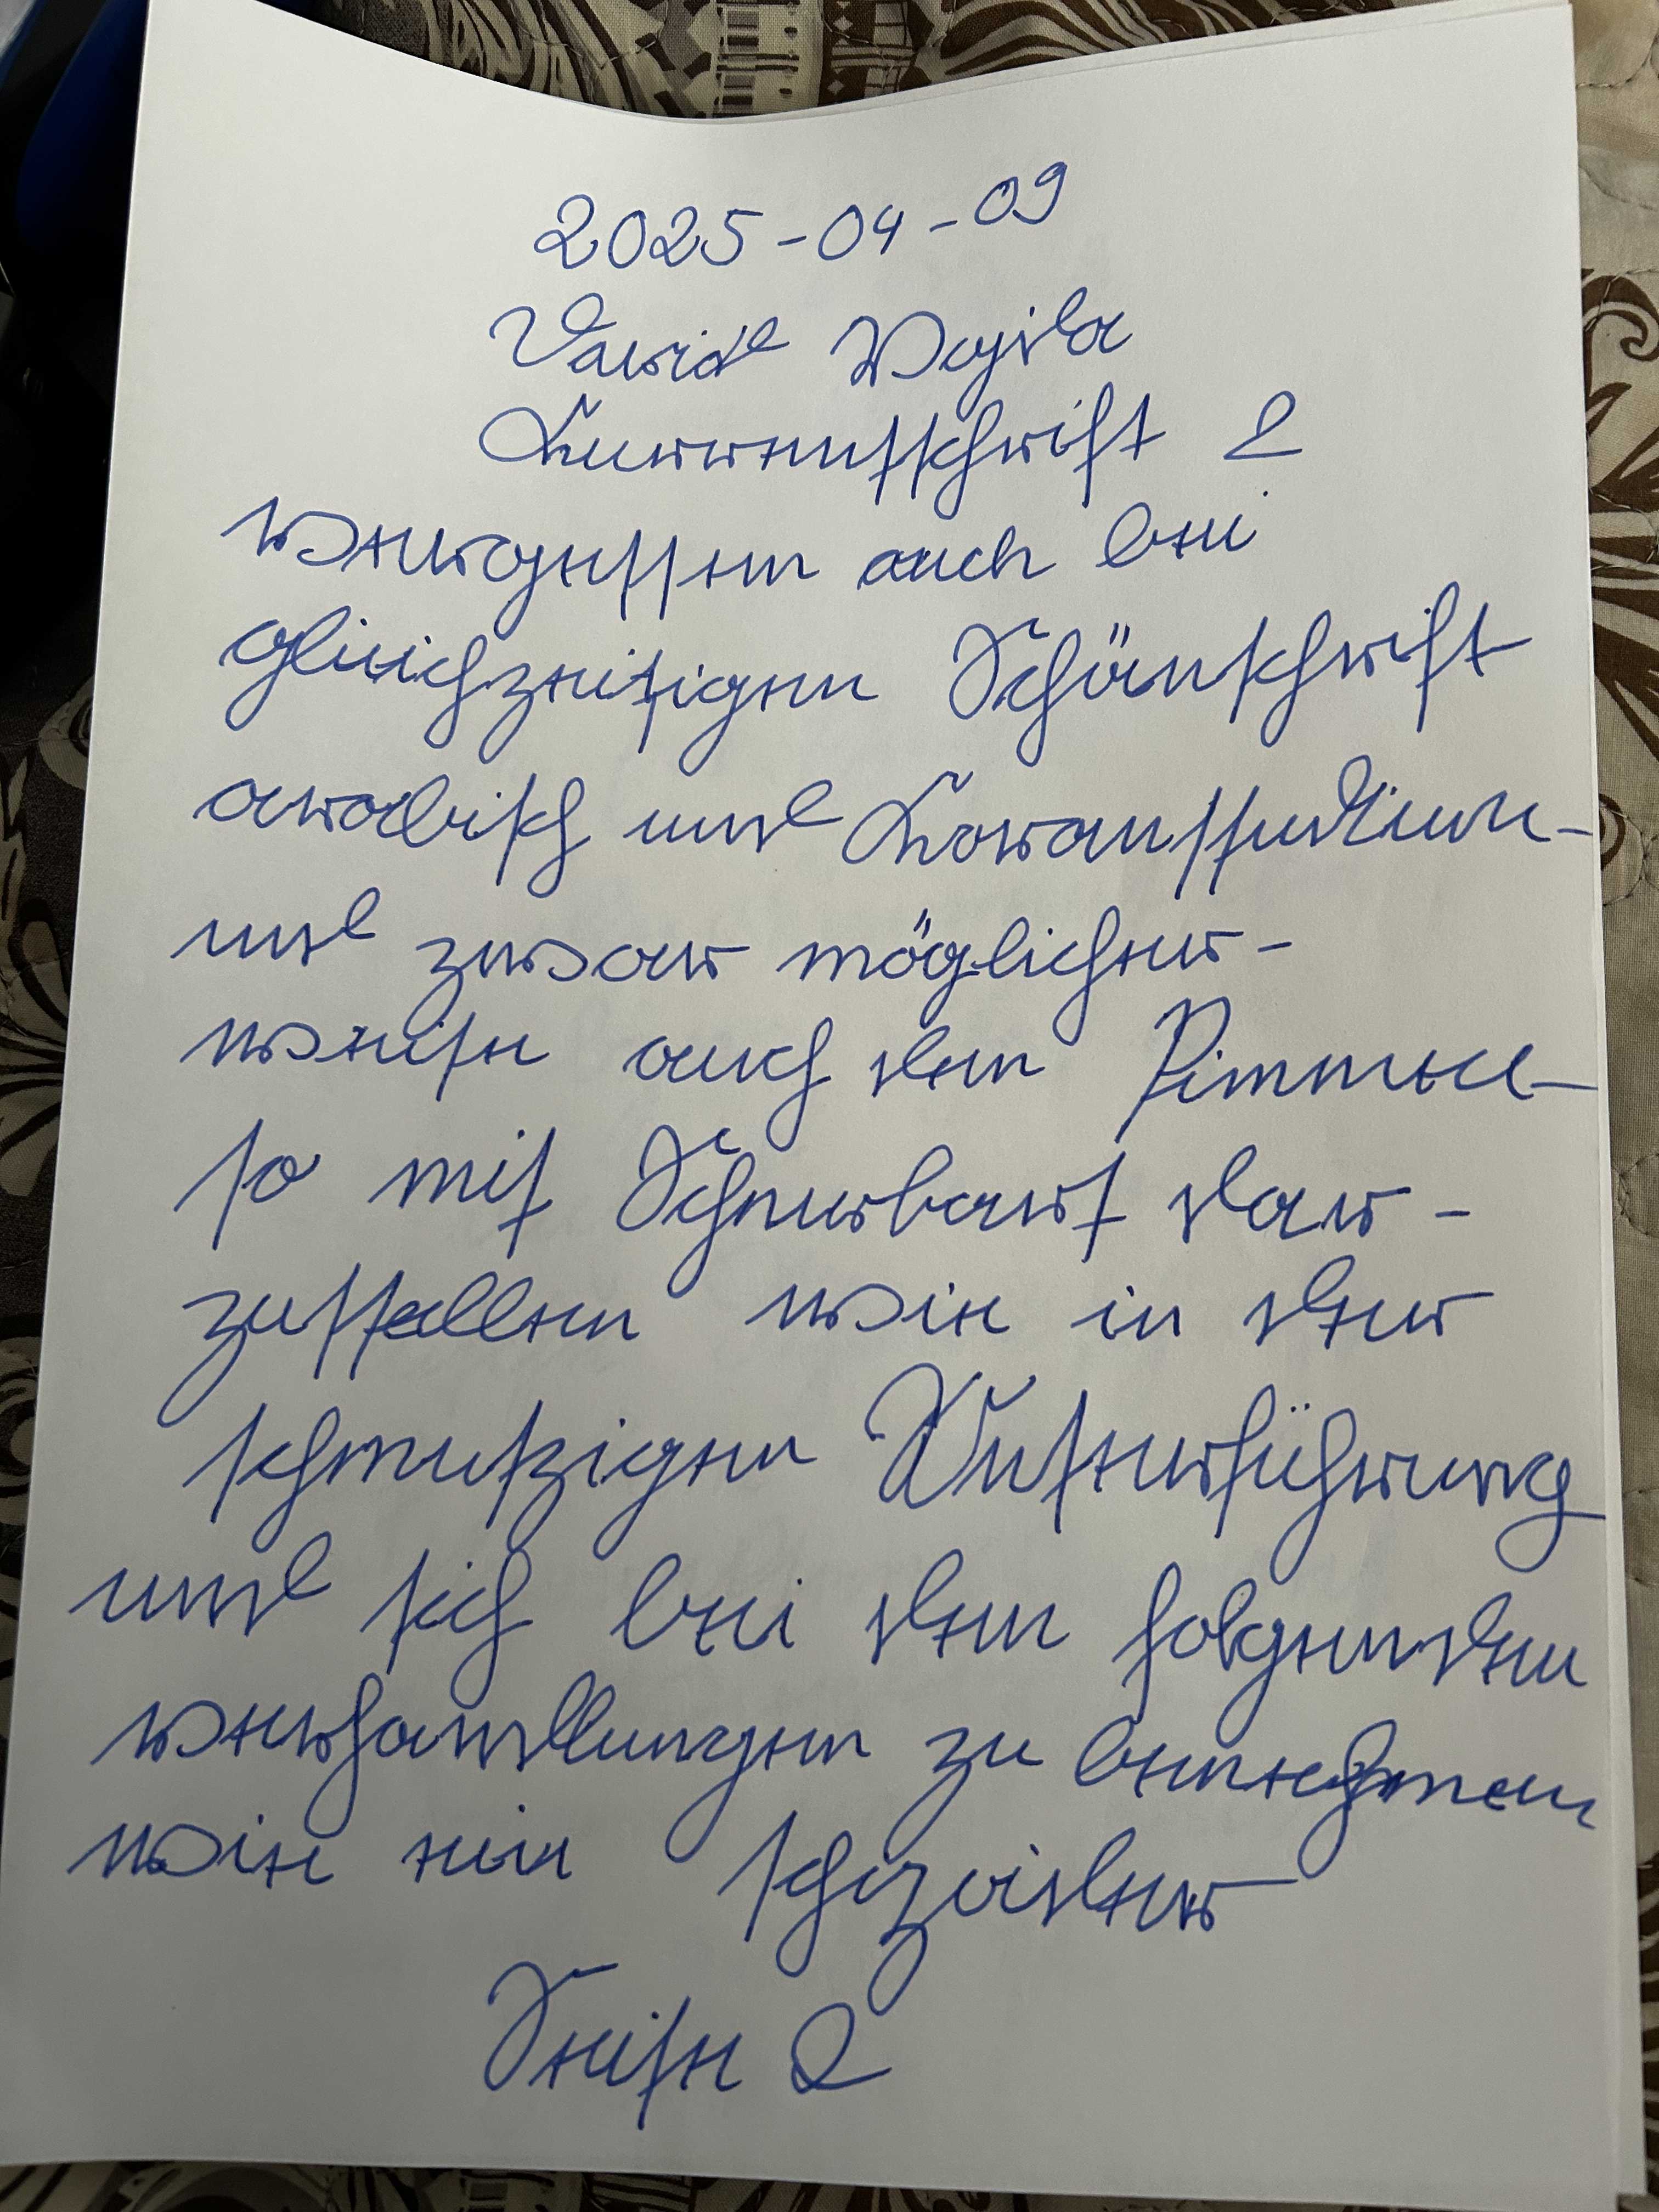 2025-04-09
David Wejda
Kurrentschrift 2
vergessen auch bei
gleichzeitigen Schönschrift
arabisch und Koranstudium-
und zwar möglicher-
weise auch den Pimmel-
so mit Schnurbart dar-
zustellen wie in der
schmutzigen Unterführung
und sich bei den folgenden
verhandlungen zu benehmen
wie ein
Seite 2